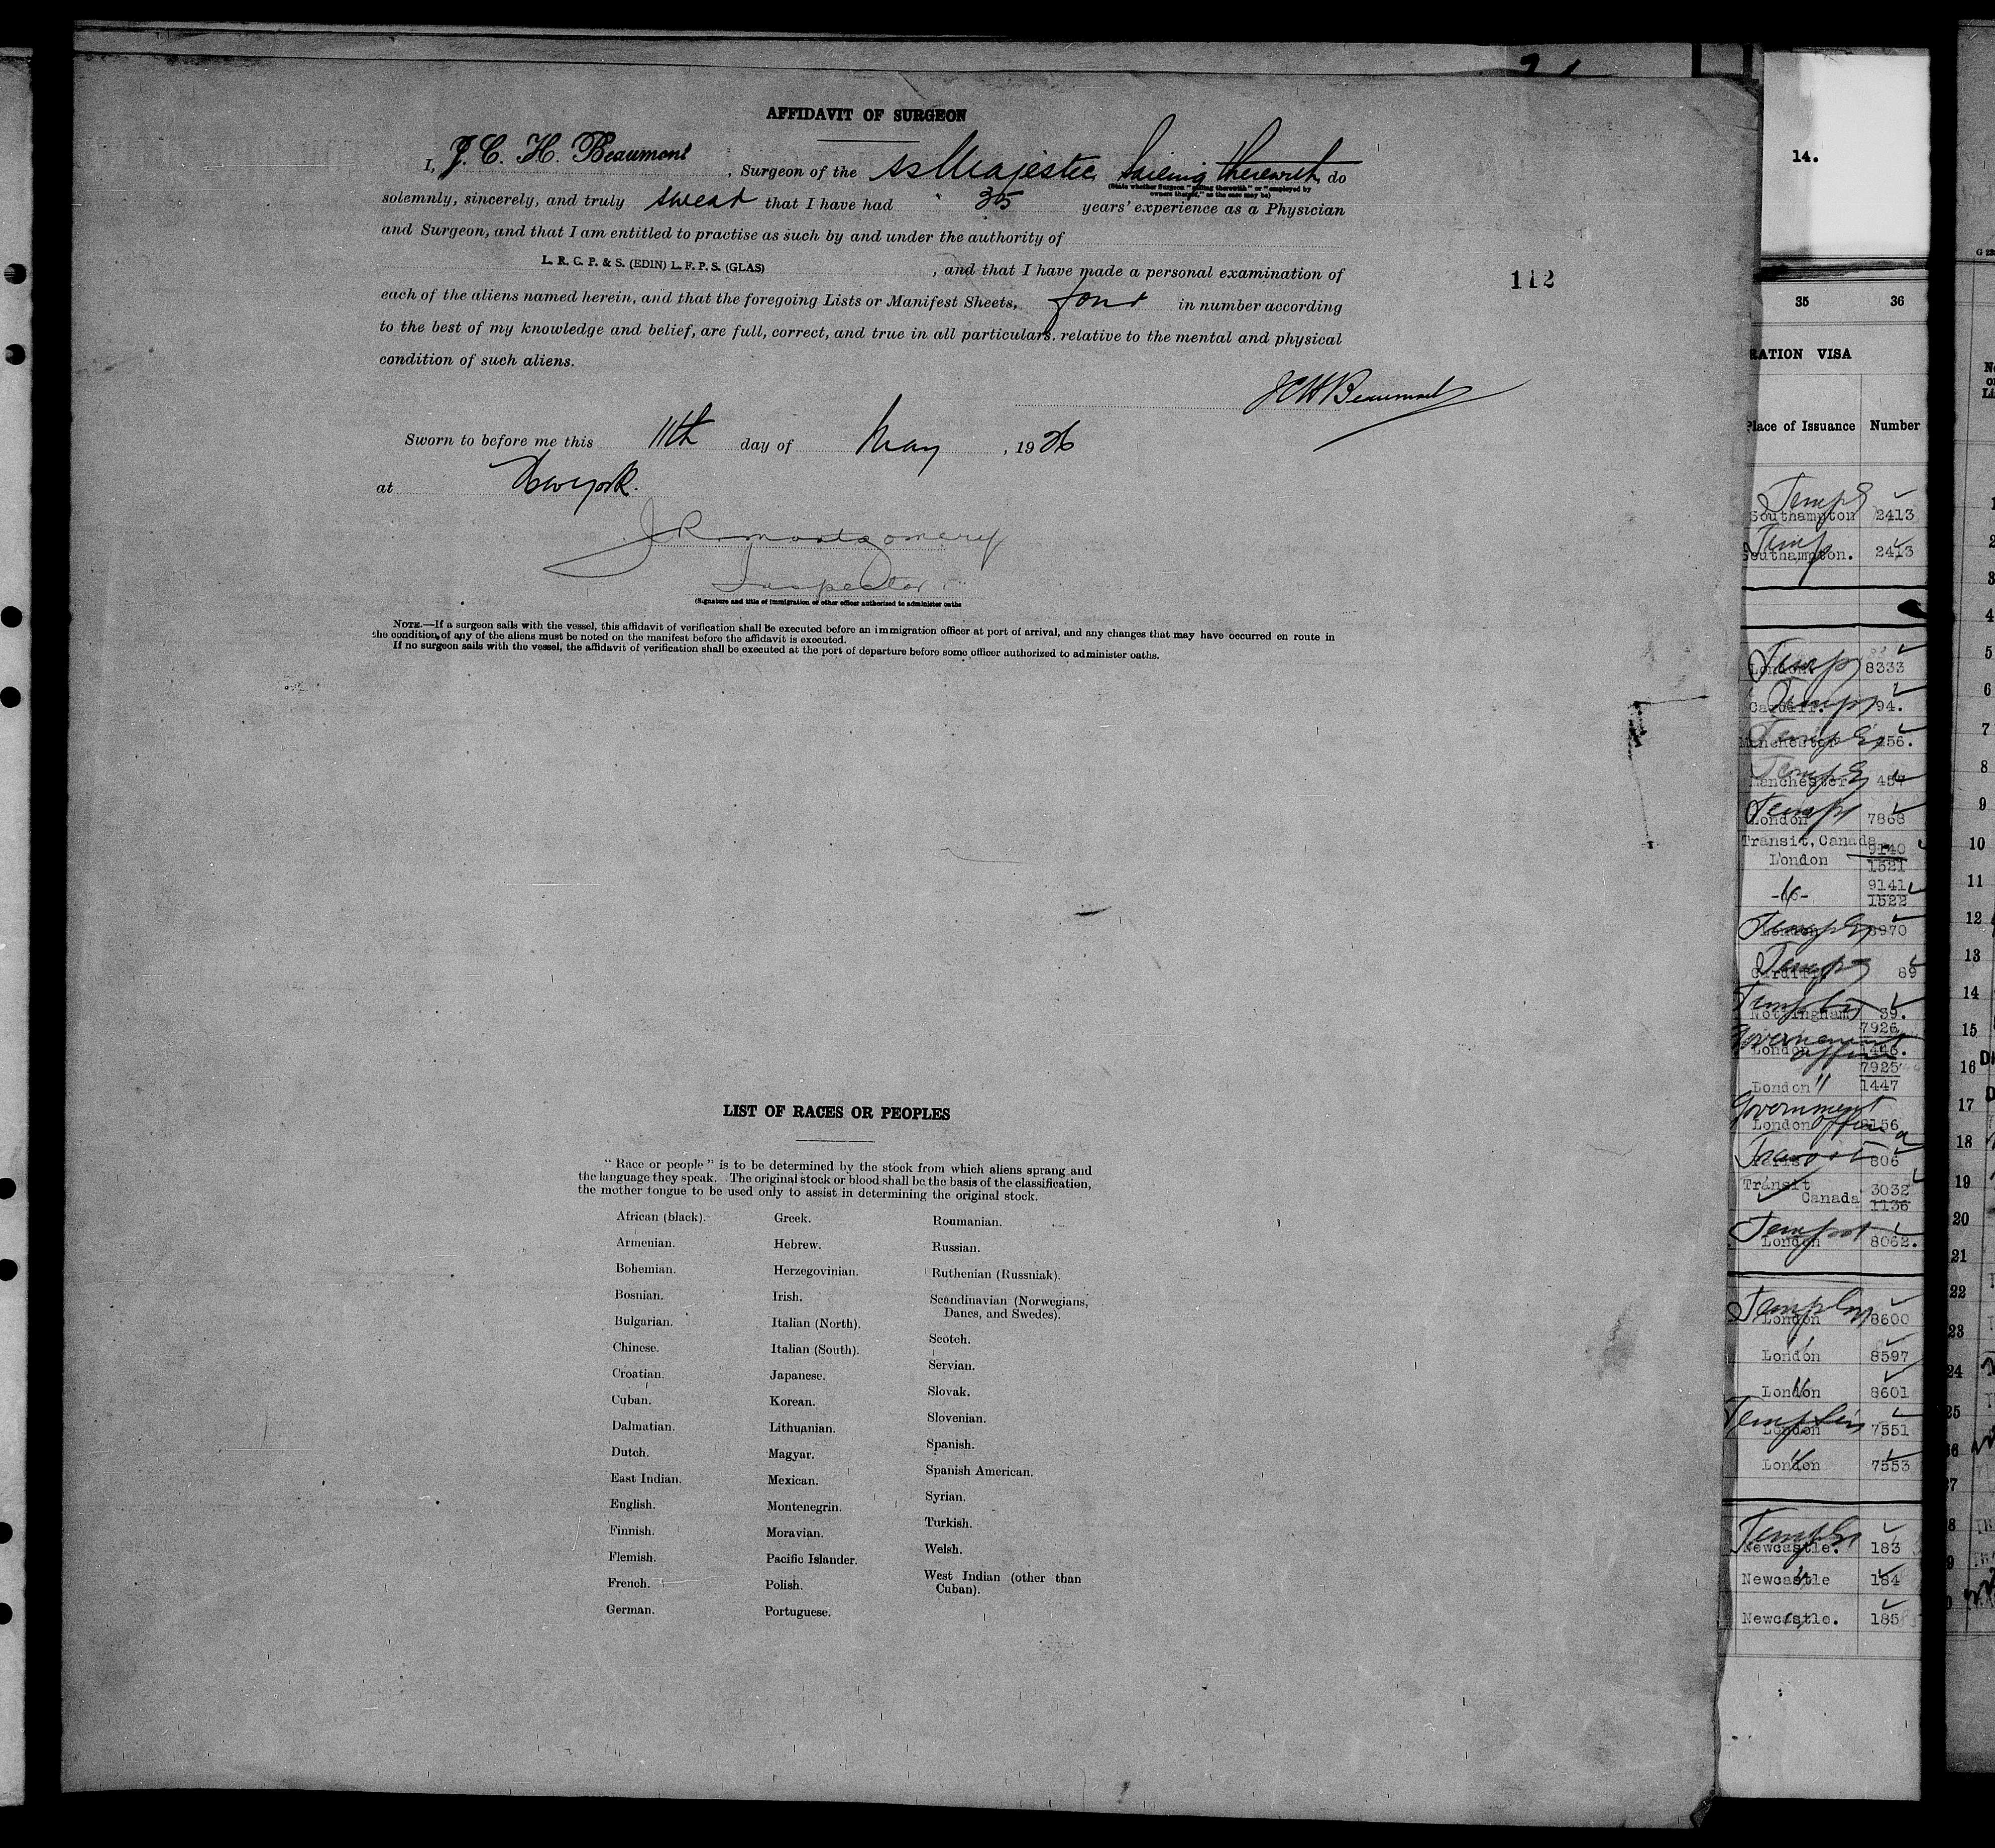 AFFIDAVIT OF SURGEON
I, J. C. H. Beaumont, Surgeon of the SS Majestic, Sailing therewith, do
(State whether Surgeon "sailing therewith" or "employed by
owners thereof," as the case may be)
solemnly, sincerely, and truly swear that I have had 35 years' experience as a Physician
and Surgeon, and that I am entitled to practise as such by and under the authority of
L. R. C. P. & S. (EDIN) L. F. P. S. (GLAS), and that I have made a personal examination of
each of the aliens named herein, and that the foregoing Lists or Manifest Sheets, four in number according
to the best of my knowledge and belief, are full, correct, and true in all particulars, relative to the mental and physical
condition of such aliens.
JCH Beaumont
Sworn to before me this 11th day of May, 1926
at New York.
J R Montgomery
Inspector.
(Signature and title of immigration or other officer authorized to administer oaths
NOTE.—If a surgeon sails with the vessel, this affidavit of verification shall be executed before an immigration officer at port of arrival, and any changes that may have occurred en route in
the condition of any of the aliens must be noted on the manifest before the affidavit is executed.
If no surgeon sails with the vessel, the affidavit of verification shall be executed at the port of departure before some officer authorized to administer oaths.
112
LIST OF RACES OR PEOPLES
"Race or people" is to be determined by the stock from which aliens sprang and
the language they speak. The original stock or blood shall be the basis of the classification,
the mother tongue to be used only to assist in determining the original stock.
African (black).
Armenian.
Bohemian.
Bosnian.
Bulgarian.
Chinese.
Croatian.
Cuban.
Dalmatian.
Dutch.
East Indian.
English.
Finnish.
Flemish.
French.
German.
Greek.
Hebrew.
Herzegovinian.
Irish.
Italian (North).
Italian (South).
Japanese.
Korean.
Lithuanian.
Magyar.
Mexican.
Montenegrin.
Moravian.
Pacific Islander.
Polish.
Portuguese.
Roumanian.
Russian.
Ruthenian (Russniak).
Scandinavian (Norwegians,
Danes, and Swedes).
Scotch.
Servian.
Slovak.
Slovenian.
Spanish.
Spanish American.
Syrian.
Turkish.
Welsh.
West Indian (other than
Cuban).
14.
35 36
RATION VISA
Place of Issuance Number
Southampton 2413
Southampton. 2413
London. 8333
Cardiff. 94.
Manchester 456.
Manchester 457
London 7868
Transit, Canada
London 9140
1521
9141
1522
London 8970
Cardiff 89
Nottingham 39.
Government
7926
London 1446.
7925
London " 1447
Government
London 8156
Paris 806
Transit
Canada 3032
1136
London 8062.
London 8600
London 8597
London 8601
London 7551
London 7553
Newcastle. 183
Newcastle 184
Newcastle. 185
1
2
3
4
5
6
7
8
9
10
11
12
13
14
15
16
17
18
19
20
21
22
23
24